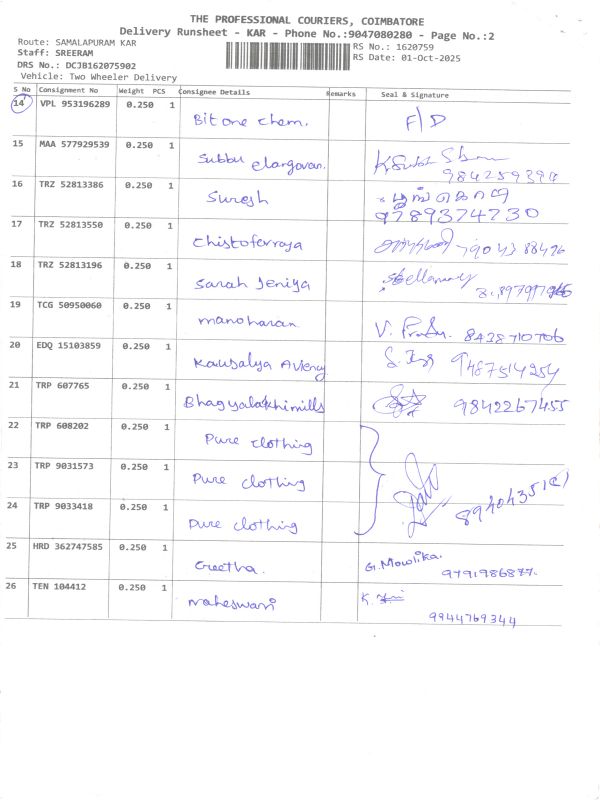 THE PROFESSIONAL COURIERS, COIMBATORE
Delivery Runsheet - KAR - Phone No.:9047080280 - Page No.:2
Route: SAMALAPURAM KAR RS No.: 1620759
Staff: SREERAM RS Date: 01-Oct-2025
DRS No.: DCJB162075902
Vehicle: Two Wheeler Delivery
S No Consignment No Weight PCS Consignee Details Remarks Seal & Signature
14 VPL 953196289 0.250 1 Bit one chem. F/D
15 MAA 577929539 0.250 1 Subbu elangovan.
16 TRZ 52813386 0.250 1 Suresh பூங்கொடி
9789374730
17 TRZ 52813550 0.250 1 Chistoferraya 7904388496
18 TRZ 52813196 0.250 1 Sarah Jeniya
19 TCG 50950060 0.250 1 manoharan V. 8438710706
20 EDQ 15103859 0.250 1 Kausalya 9487514254
21 TRP 607765 0.250 1 Bhagyalakhimills 9842267455
22 TRP 608202 0.250 1 Pure clothing
23 TRP 9031573 0.250 1 Pure clothing
24 TRP 9033418 0.250 1 Pure clothing
25 HRD 362747585 0.250 1 Geetha. G. Mowlika.
9791986877.
26 TEN 104412 0.250 1 maheswari K.
9944769344